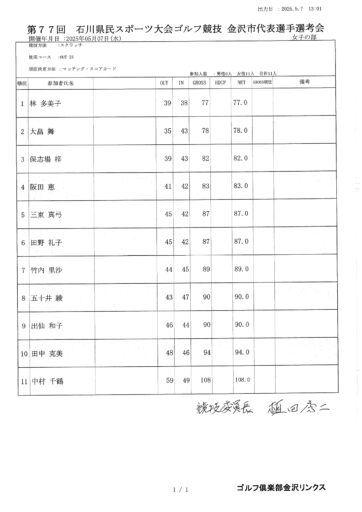 出力日 : 2025.5.7 13:01
第77回 石川県民スポーツ大会ゴルフ競技 金沢市代表選手選考会
開催年月日 :2025年05月07日(水) 女子の部
競技方法 :スクラッチ
使用コース :OUT IN
同順位者方法 :マッチング・スコアカード
参加人数 : 男性0人 女性11人 合計11人
順位 参加者氏名 OUT IN GROSS HDCP NET GROSS順位 備考
1 林 多美子 39 38 77 77.0
2 大畠 舞 35 43 78 78.0
3 保志場 梓 39 43 82 82.0
4 阪田 恵 41 42 83 83.0
5 三東 真弓 45 42 87 87.0
6 田野 礼子 45 42 87 87.0
7 竹内 里沙 44 45 89 89.0
8 五十井 綾 43 47 90 90.0
9 出仙 和子 46 44 90 90.0
10 田中 克美 48 46 94 94.0
11 中村 千鶴 59 49 108 108.0
競技委員長 植田
1 / 1
ゴルフ倶楽部金沢リンクス